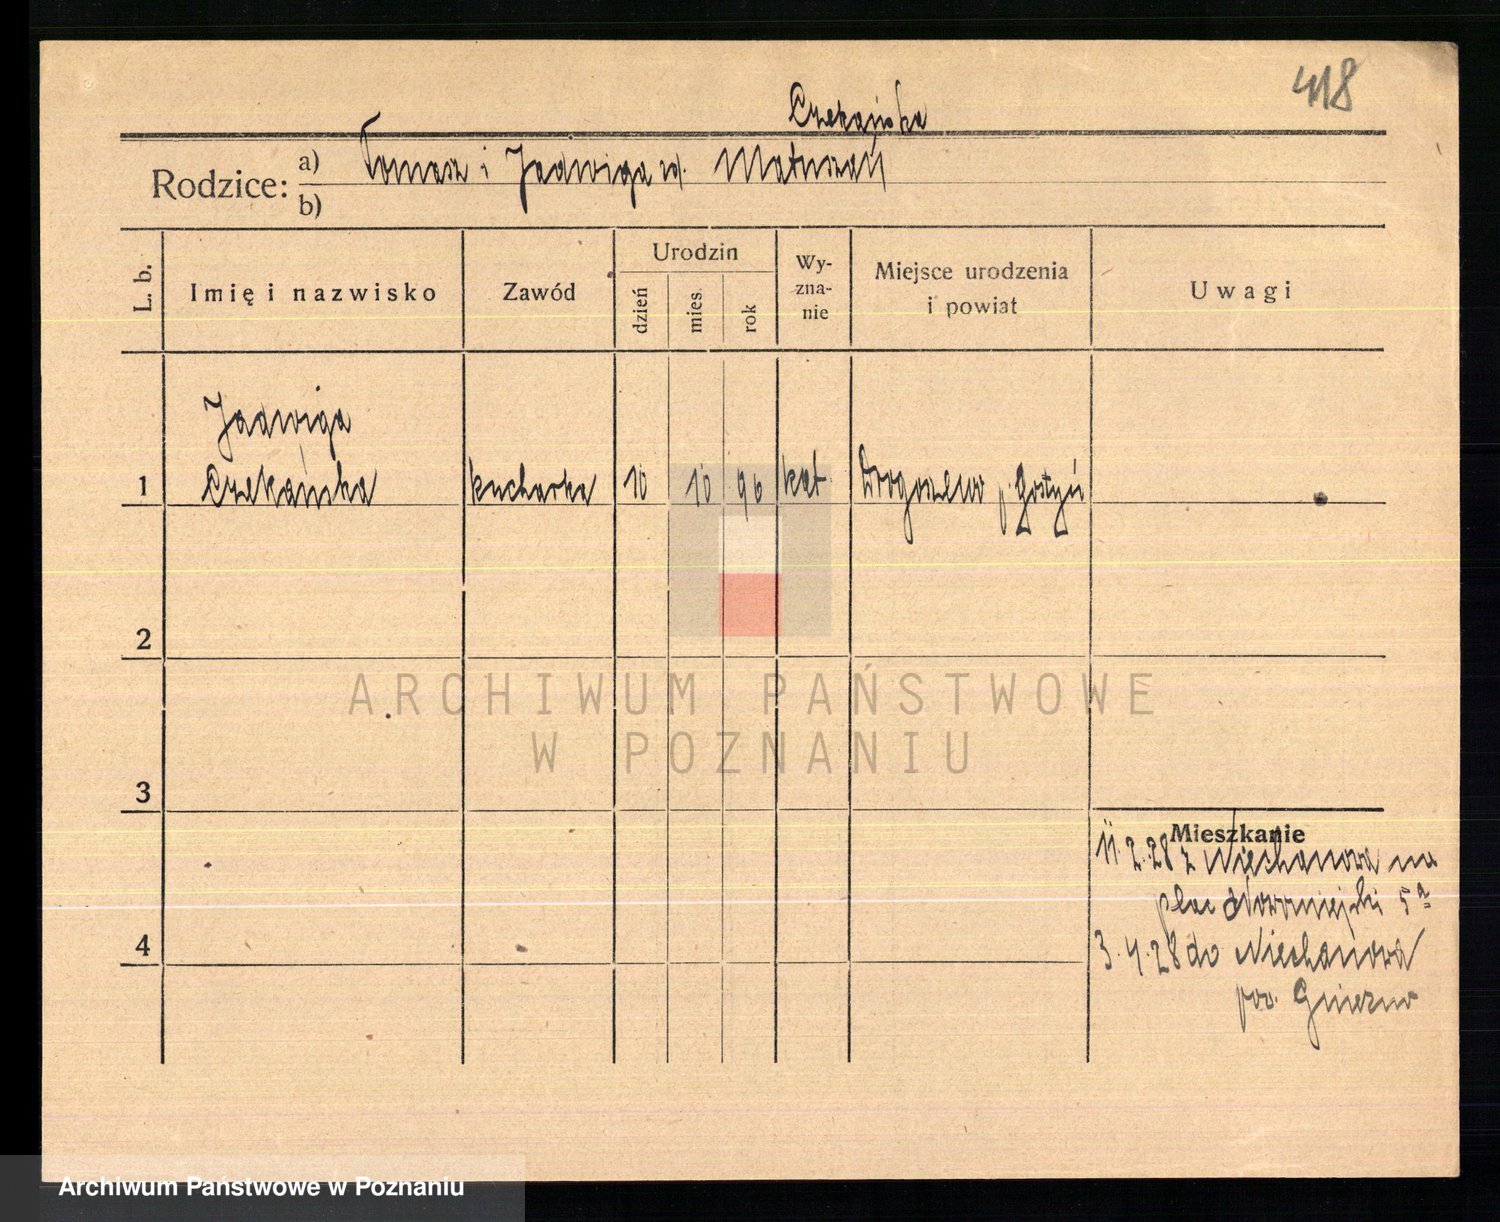 418
Czekańska
Rodzice: a) Tomasz i Jadwiga z d. Matuszak
b)
L. b.
Imię i nazwisko
Zawód
Urodzin
dzień
mies.
rok
Wy-
zna-
nie
Miejsce urodzenia
i powiat
Uwagi
Jadwiga
1 Czekańska kucharka 10 10 96 kat. p. Gostyń
2
ARCHIWUM PAŃSTWOWE
W POZNANIU
3
Mieszkanie
11.2.28 z Niechanowa na
plac Nowomiejski 5a
4
3.4.28 do Niechanowa
pow. Gniezno
Archiwum Państwowe w Poznaniu